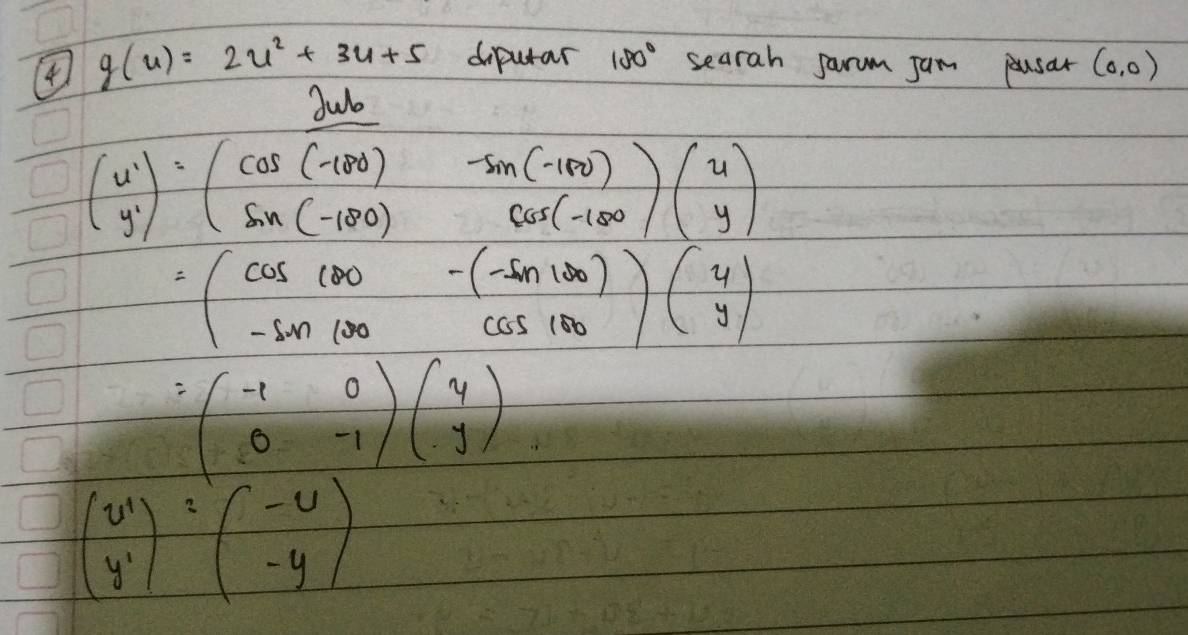 ④ g(u) = 2u² + 3u + 5 diputar 180° searah jarum jam pusat (0,0)
Jwb
(u' y') = (cos (-180) -sin (-180) sin (-180) cos (-180) (u y)
= (cos 180 -(-sin 180) -sin 180 cos 180) (u y)
= (-1 0 0 -1) (u y)
(u' y') = (-u -y)